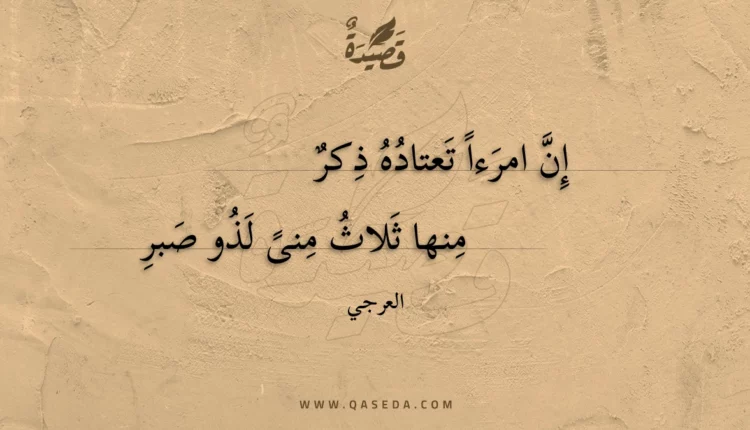 قَصِيْدَةٌ
إِنَّ امرَءاً تَعتادُهُ ذِكرٌ
مِنها ثَلاثُ مِنىً لَذُو صَبرِ
العرجي
WWW.QASEDA.COM